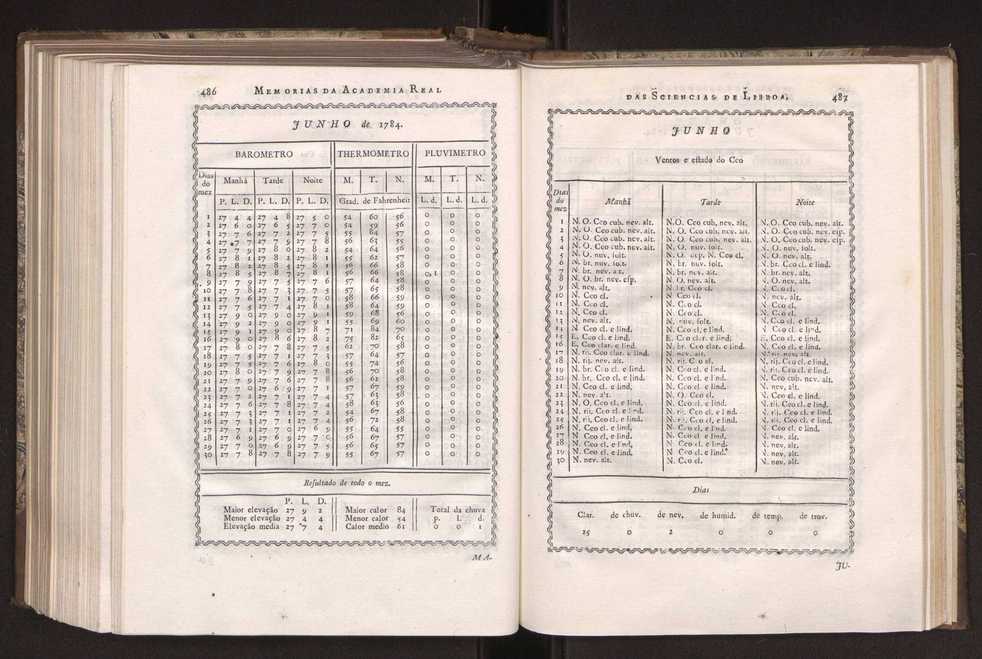 486 MEMORIAS DA ACADEMIA REAL
JUNHO de 1784.
BAROMETRO THERMOMETRO PLUVIMETRO
Dias do mez Manhã Tarde Noite M. T. N. M. T. N.
P. L. D. P. L. D. P. L. D. Grad. de Fahrenheit L. d. L. d. L. d.
1 27 4 4 27 4 8 27 5 0 54 60 56 0 0 0
2 27 6 0 27 6 5 27 7 0 54 59 56 0 0 0
3 27 7 6 27 7 2 27 7 5 55 64 57 0 0 0
4 27 7 7 27 7 9 27 7 8 56 63 55 0 0 0
5 27 7 9 27 8 0 27 8 2 54 64 56 0 0 0
6 27 8 1 27 8 2 27 8 1 55 62 57 0 0 0
7 27 8 2 27 8 5 27 8 1 56 66 58 0 0 0
8 27 8 5 27 8 7 27 8 1 56 66 58 0 1 0 0
9 27 7 9 27 7 5 27 7 6 57 64 58 0 0 0
10 27 7 8 27 7 3 27 7 5 57 65 58 0 0 0
11 27 7 6 27 7 1 27 7 0 58 66 59 0 0 0
12 27 7 5 27 7 4 27 8 1 58 64 59 0 0 0
13 27 9 0 27 9 0 27 9 1 59 68 56 0 0 0
14 27 9 2 27 9 0 27 9 1 55 69 60 0 0 0
15 27 9 1 27 9 0 27 8 7 71 84 70 0 0 0
16 27 9 0 27 8 6 27 8 2 75 82 65 0 0 0
17 27 8 0 27 7 8 27 7 5 62 70 58 0 0 0
18 27 7 5 27 7 1 27 7 3 57 64 57 0 0 0
19 27 7 5 27 7 6 27 8 0 55 74 56 0 0 0
20 27 8 0 27 7 9 27 7 8 56 70 58 0 0 0
21 27 7 9 27 7 6 27 7 8 56 62 58 0 0 0
22 27 7 0 27 6 9 27 7 1 57 67 59 0 0 0
23 27 7 2 27 7 1 27 7 4 57 63 58 0 0 0
24 27 7 6 27 7 4 27 7 4 58 63 56 0 0 0
25 27 7 3 27 7 1 27 7 2 54 67 58 0 0 0
26 27 7 3 27 7 1 27 7 4 56 72 58 0 0 0
27 27 7 1 27 7 0 27 6 9 55 64 55 0 0 0
28 27 6 9 27 6 9 27 7 0 56 67 57 0 0 0
29 27 7 0 27 6 9 27 7 5 56 65 57 0 0 0
30 27 7 8 27 7 8 27 7 9 55 67 57 0 0 0
Resultado de todo o mez.
P. L. D.
Maior elevação 27 9 2 Maior calor 84 Total da chuva
Menor elevação 27 4 4 Menor calor 54 p. l. d.
Elevação media 27 7 4 Calor medio 61 0 0 1
MA-
DAS SCIENCIAS DE LISBOA. 487
JUNHO
Ventos e estado do Ceo
Dias do mez Manhã Tarde Noite
1 N. O. Ceo cub. nev. alt. N. O. Ceo cub. nev. alt. N. O. Ceo cub. nev. alt.
2 N. O. Ceo cub. nev. alt. N. O. Ceo cub. nev. alt. N. O. Ceo cub. nev. esp.
3 N. O. Ceo cub. nev. alt. N. O. Ceo cub. nev. alt. N. O. Ceo cub. nev. esp.
4 N. O. Ceo cub. nev. alt. N. O. nuv. solt. N. O. nuv. solt.
5 N. O. nuv. solt. N. O. esp. N. Ceo cl. N. O. nev. alt.
6 N. br. nuv. solt. N. br. nuv. solt. N. br. Ceo cl. e lind.
7 N. br. nev. alt. N. br. nev. alt. N. O. nev. alt.
8 N. O. br. nev. esp. N. O. nev. alt. N. O. nev. alt.
9 N. nev. alt. N. br. Ceo cl. N. Ceo cl.
10 N. Ceo cl. N. Ceo cl. N. nev. alt.
11 N. Ceo cl. N. Ceo cl. N. Ceo cl.
12 N. Ceo cl. N. Ceo cl. N. Ceo cl.
13 N. nev. alt. N. nuv. solt. N. Ceo cl. e lind.
14 N. Ceo cl. e lind. N. Ceo cl. e lind. N. Ceo cl. e lind.
15 E. Ceo cl. e lind. E. Ceo clar. e lind. E. Ceo cl. e lind.
16 E. Ceo clar. e lind. N. br. Ceo clar. e lind. N. Ceo cl. e lind.
17 N. rij. Ceo clar. e lind. N. nev. alt. N. rij. nev. alt.
18 N. rij. nev. alt. N. rij. Ceo cl. N. rij. Ceo cl. e lind.
19 N. br. Ceo cl. e lind. N. Ceo cl. e lind. N. rij. Ceo cl. e lind.
20 N. br. Ceo cl. e lind. N. Ceo cl. e lind. N. Ceo cub. nev. alt.
21 N. Ceo cl. e lind. N. Ceo cl. e lind. N. nev. alt.
22 N. nev. alt. N. O. Ceo cl. N. Ceo cl. e lind.
23 N. O. Ceo cl. e lind. N. Ceo cl. e lind. N. rij. Ceo cl. e lind.
24 N. rij. Ceo cl. e lind. N. rij. Ceo cl. e lind. N. rij. Ceo cl. e lind.
25 N. rij. Ceo cl. e lind. N. rij. Ceo cl. e lind. N. rij. Ceo cl. e lind.
26 N. Ceo cl. e lind. N. Ceo cl. e lind. N. Ceo cl. e lind.
27 N. Ceo cl. e lind. N. Ceo cl. e lind. N. nev. alt.
28 N. Ceo cl. e lind. N. Ceo cl. e lind. N. nev. alt.
29 N. Ceo cl. e lind. N. Ceo cl. e lind. N. nev. alt.
30 N. nev. alt. N. Ceo cl. N. nev. alt.
Dias
Clar. de chuv. de nev. de humid. de temp. de trov.
25 0 2 0 0 0
JU-